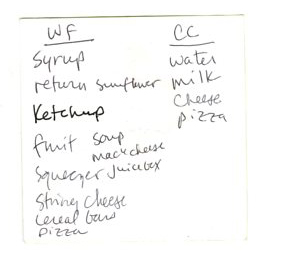 WF
syrup
return sunflower
Ketchup
fruit soup
mac & cheese
squeezer juicebox
string cheese
cereal bars
pizza
CC
water
milk
cheese
pizza